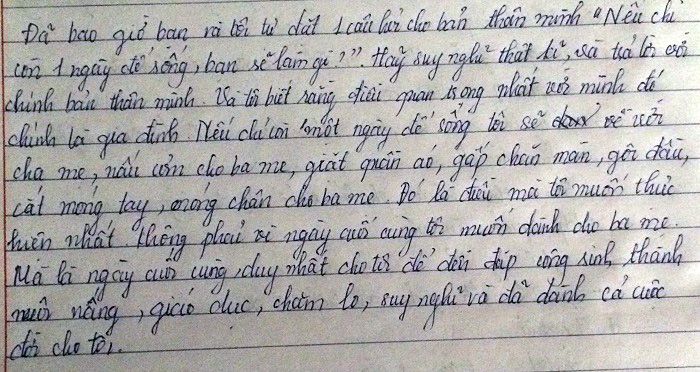 Đã bao giờ bạn và tôi tự đặt 1 câu hỏi cho bản thân mình "Nếu chỉ
còn 1 ngày để sống, bạn sẽ làm gì?". Hãy suy nghĩ thật kĩ, và trả lời với
chính bản thân mình. Và tôi biết rằng điều quan trọng nhất với mình đó
chính là gia đình. Nếu chỉ còn một ngày để sống tôi sẽ về với
cha mẹ, nấu cơm cho ba mẹ, giặt quần áo, gấp chăn màn, gội đầu,
cắt móng tay, móng chân cho ba mẹ. Đó là điều mà tôi muốn thực
hiện nhất. Không phải vì ngày cuối cùng tôi muốn dành cho ba mẹ.
Mà là ngày cuối cùng, duy nhất cho tôi để đền đáp công sinh thành
nuôi nấng, giáo dục, chăm lo, suy nghĩ và đã dành cả cuộc
đời cho tôi.